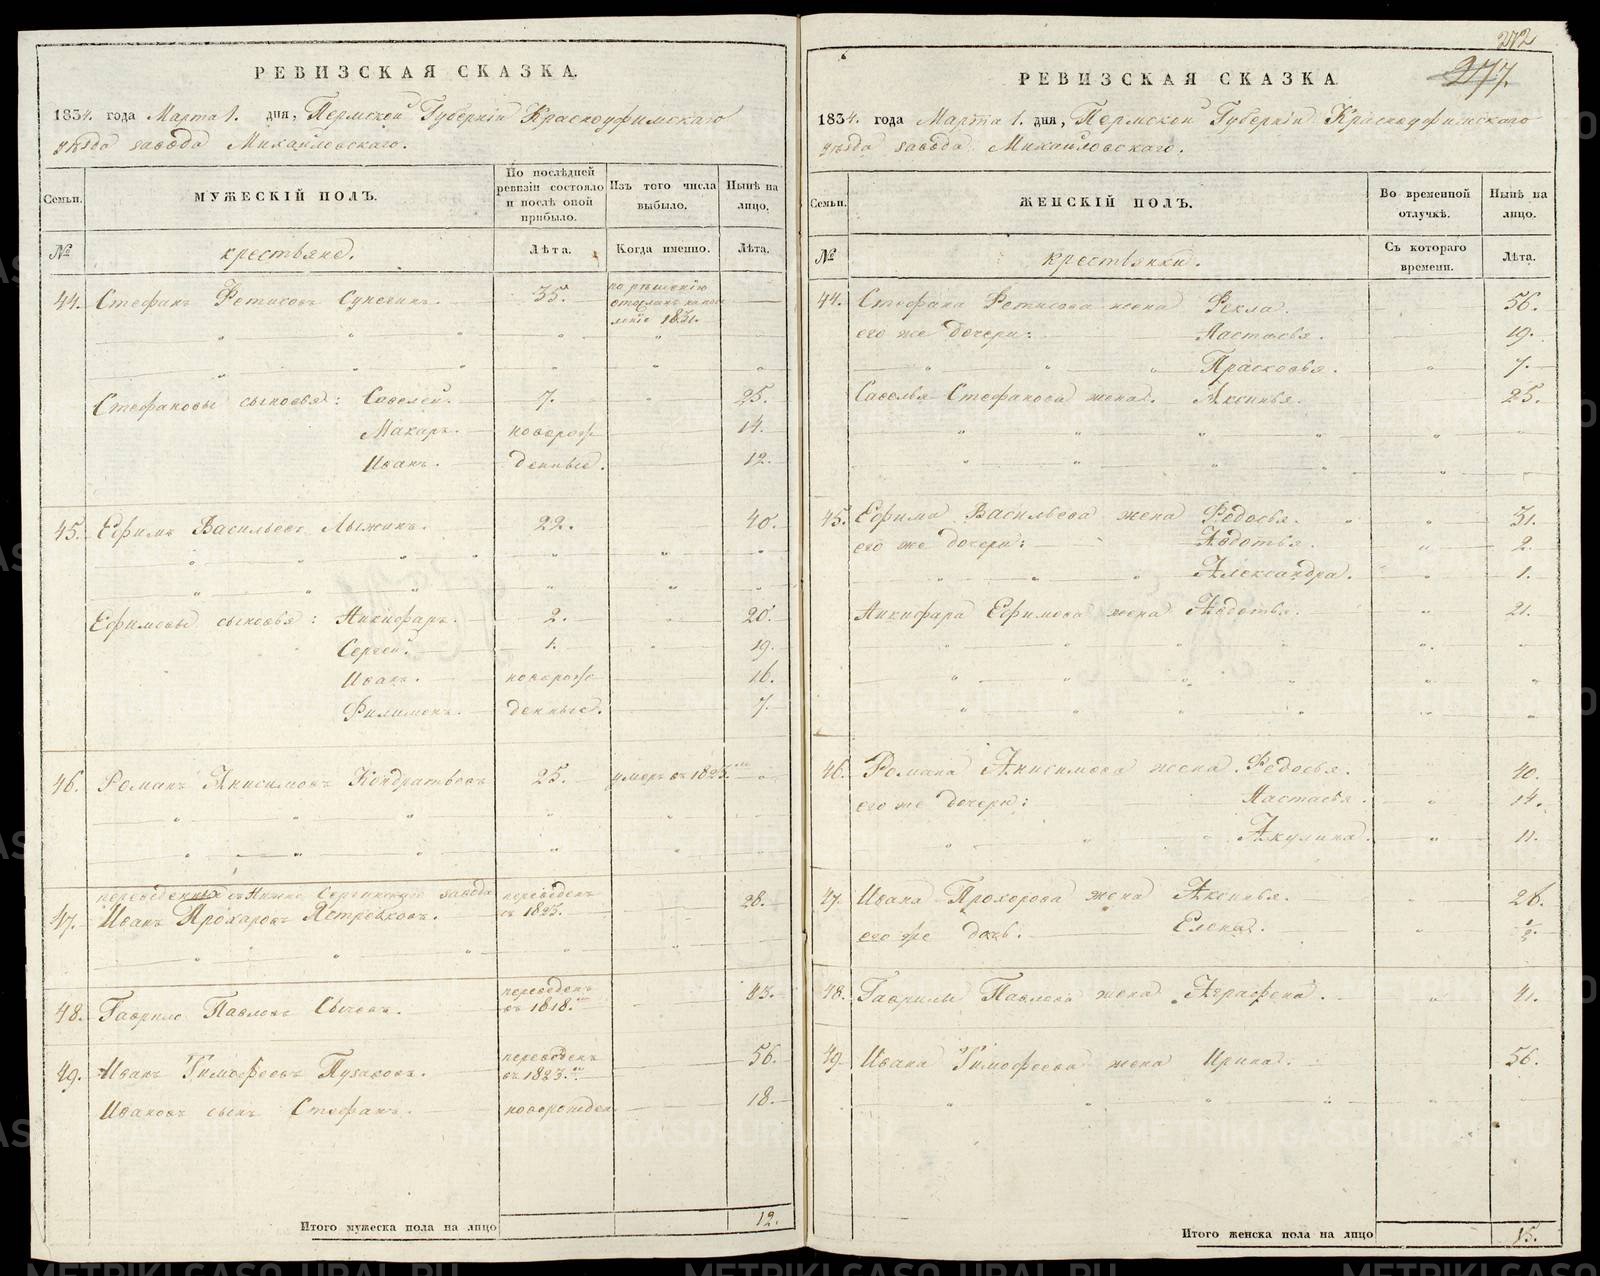 РЕВИЗСКАЯ СКАЗКА.
1834. года Марта 1. дня, Пермской Губернiи Красноуфимскаго
уѣзда завода Михайловскаго.
Семьи.
МУЖЕСКIЙ ПОЛЪ.
По послѣдней ревизiи состояло и послѣ оной прибыло.
Изъ того числа выбыло.
Нынѣ на лицо.
№
крестьяне.
Лѣта.
Когда именно.
Лѣта.
44. Стефанъ Фетисовъ 35. по рѣшенiю
1831.
Стефановы сыновья: Савелей. 7. 25.
Макаръ. новорож 14.
Иванъ. денные. 12.
45. Ефимъ Васильевъ Лыжинъ. 22. 40.
Ефимовы сыновья: Никифаръ. 2. 20.
Сергей. 1. 19.
Иванъ. новорож 16.
Филимонъ. денные. 7.
46. Романъ Анисимовъ Кондратьевъ 25. умеръ въ 1825.
переведенные съ Нижне Сергинскаго завода
47. Иванъ Прохаровъ Ястребковъ. переведенъ въ 1823. 28.
48. Гаврило Павловъ Сычевъ. переведенъ въ 1818. 43.
49. Иванъ Тимофеевъ Пузаковъ. переведенъ въ 1823. 56.
Ивановъ сынъ Стефанъ. новорожден 18.
Итого мужеска пола на лицо 12.
272
277.
РЕВИЗСКАЯ СКАЗКА
1834. года Марта 1. дня, Пермской Губернiи Красноуфимскаго
уѣзда завода Михайловскаго.
Семьи.
ЖЕНСКIЙ ПОЛЪ.
Во временной отлучкѣ.
Нынѣ на лицо.
№
крестьянки.
Съ котораго времени.
Лѣта.
44. Стефана Фетисова жена Фекла. 56.
его же дочери: Настасья. 19.
Прасковья. 7.
Савелья Стефанова жена. Аксинья. 25.
45. Ефима Васильева жена Федосья. 31.
его же дочери: Авдотья. 2.
Александра. 1.
Никифара Ефимова жена Авдотья. 21.
46. Романа Анисимова жена Федосья. 40.
его же дочери: Настасья. 14.
Акулина. 11.
47. Ивана Прохорова жена Аксинья. 26.
его же дочь. Елена.
48. Гаврилы Павлова жена Аграфена. 41.
49. Ивана Тимофеева жена Ирина. 56.
Итого женска пола на лицо 15.
METRIKI.GASO-URAL.RU